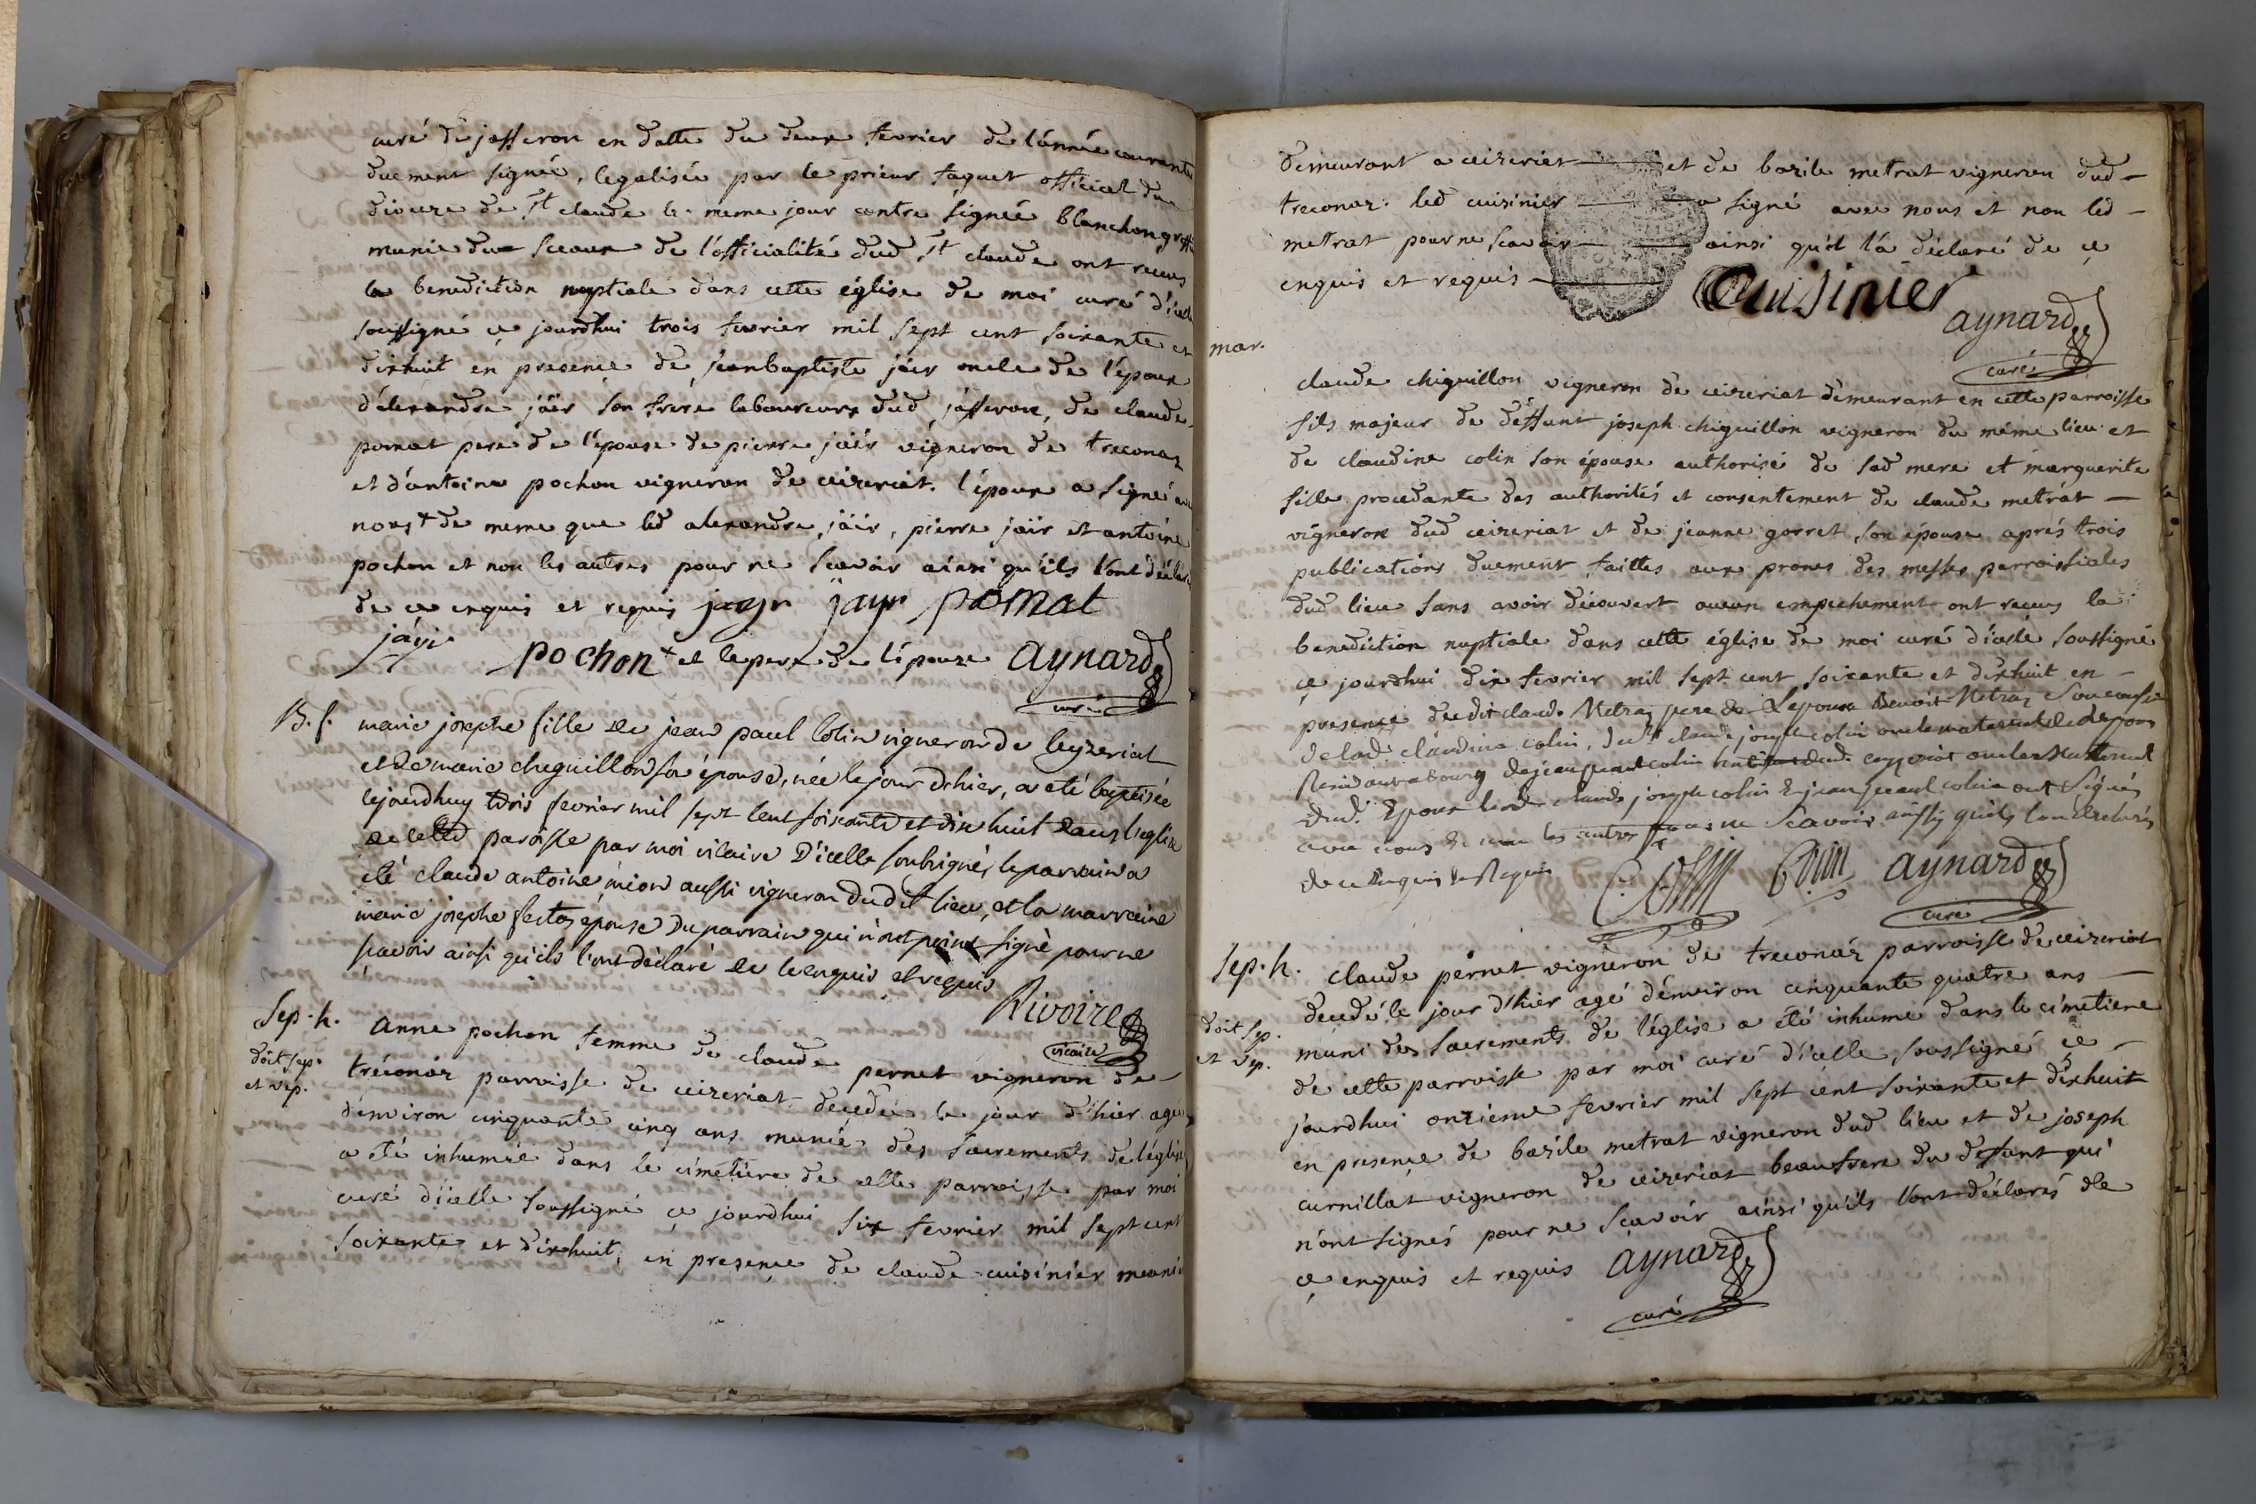 curé de jasseron en datte du deux fevrier de l'année courante
duement signée, legalisée par le prieur faquet official du
diocèze de St claude le meme jour contre signée blanchon greffi
munie du sceaux de l'officialité dud St claude ont receus
la benediction nuptiale dans cette église de moi curé d'icelle
soussigné ce jourdhui trois fevrier mil sept cent soixante et
dixhuit en presence de jeanbaptiste jäir oncle de l'époux
d'alexandre jäir son frere laboureurs dud jasseron, de claude
pomat pere de l'épouse de pierre jäir vigneron de treconaz
et d'antoine pochon vigneron de ceizeriat. l'époux a signé avec
nous + de meme que led alexandre jäir, pierre jäir et antoine
pochon et non les autres pour ne scavoir ainsi qu'ils l'ont déclaré
de ce enquis et requis jayr jayr pomat
jäyr pochon + et le pere de l'épouze aynard
curé
B. f. marie josephe fille de jean paul Colin vigneron de Ceyzeriat
et de marie cheguillon son épouse, née le jour d'hier, a été baptisée
cejourdhuy trois fevrier mil sept cent soixante et dix huit dans l'eglise
de cette paroisse par moi vicaire d'icelle soubsigné, le parrain a
été claude antoine mion aussi vigneron dudit lieu, et la marraine
marie josephe epouse du parrain qui n'ont point signé pour ne
scavoir ainsi qu'ils l'ont déclaré de ce enquis et requis
Rivoire
vicaire
Sep. h. anne pochon femme de claude pernet vigneron de
doit sep. tréconáz parroisse de ceizeriat decedée le jour d'hier agée
et vep. d'environ cinquante cinq ans munie des sacrements de l'église
a été inhumée dans le cimetiere de cette parroisse par moi
curé d'icelle soussigné ce jourdhui six fevrier mil sept cent
soixante et dixhuit, en presence de claude cuisinier meuni
demeurant a ceizeriat et de bazile metrat vigneron dud
treconaz. led cuisinier a signé avec nous et non led
metrat pour ne scavoir ainsi qu'il l'a déclaré de ce
enquis et requis
Cuisinier
aynard
curé
mar.
claude chiguillon vigneron de ceizeriat demeurant en cette parroisse
fils majeur de deffunt joseph chiguillon vigneron du méme lieu et
de claudine colin son épouse authorisé de sad mere et marguerite
fille procedante des authorités et consentement de claude metrát
vigneron dud ceizeriat et de jeanne gorret son épouse aprés trois
publications duement faittes aux prones des messes parroissiales
dud lieu sans avoir découvert aucun empechement ont receus la
benediction nuptiale dans cette église de moi curé d'icelle soussigné
ce jourdhui dix fevrier mil sept cent soixante et dixhuit en
presence dudit claude Metraz pere de L'epouse Benoit Metraz Son
de lad. claudine colin, claude joseph colin oncle maternel de l'epoux
de jean paul colin oncle maternel
dud. Epoux claude joseph colin Et jean paul colin ont Signés
avec nous Et non les autres pour ne Scavoir ainsi qu'ils l'ont declarés
de ce Enquis Et Requis Colin Colin aynard
curé
Sep. h. claude pernet vigneron de treconáz parroisse de ceizeriat
decedé le jour d'hier agé d'environ cinquante quatre ans
doit sep. muni des sacrements de l'église a été inhumé dans le cimetiere
et vep. de cette parroisse par moi curé d'icelle soussigné ce
jourdhui onzieme fevrier mil sept cent soixante et dixhuit
en presence de bazile metrat vigneron dud lieu et de joseph
curnillat vigneron de ceizeriat beaufrere du defunt qui
n'ont signés pour ne scavoir ainsi qu'ils l'ont déclarés de
ce enquis et requis aynard
curé